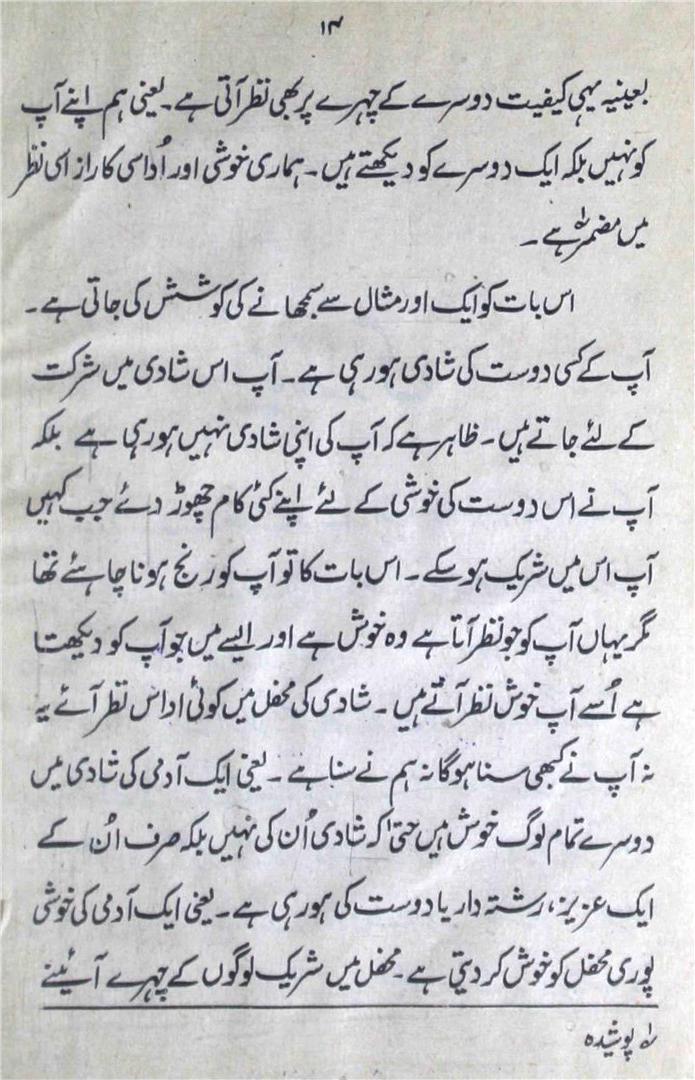 ۱۴
بعینیہ یہی کیفیت دوسرے کے چہرے پر بھی نظر آتی ہے۔ یعنی ہم اپنے آپ
کو نہیں بلکہ ایک دوسرے کو دیکھتے ہیں۔ ہماری خوشی اور اُداسی کا راز اسی نظر
میں مضمر۱؎ ہے۔
اس بات کو ایک اور مثال سے سمجھانے کی کوشش کی جاتی ہے۔
آپ کے کسی دوست کی شادی ہو رہی ہے۔ آپ اس شادی میں شرکت
کے لئے جاتے ہیں۔ ظاہر ہے کہ آپ کی اپنی شادی نہیں ہو رہی ہے بلکہ
آپ نے اس دوست کی خوشی کے لئے اپنے کئی کام چھوڑ دئے جب کہیں
آپ اس میں شریک ہو سکے۔ اس بات کا تو آپ کو رنج ہونا چاہئے تھا
مگر یہاں آپ کو جو نظر آتا ہے وہ خوش ہے اور ایسے میں جو آپ کو دیکھتا
ہے اُسے آپ خوش نظر آتے ہیں۔ شادی کی محفل میں کوئی اداس نظر آئے یہ
نہ آپ نے کبھی سنا ہوگا نہ ہم نے سنا ہے۔ یعنی ایک آدمی کی شادی میں
دوسرے تمام لوگ خوش ہیں حتیٰ کہ شادی اُن کی نہیں بلکہ صرف اُن کے
ایک عزیز، رشتہ دار یا دوست کی ہو رہی ہے۔ یعنی ایک آدمی کی خوشی
پوری محفل کو خوش کر دیتی ہے۔ محفل میں شریک لوگوں کے چہرے آئینے
۱؎ پوشیدہ